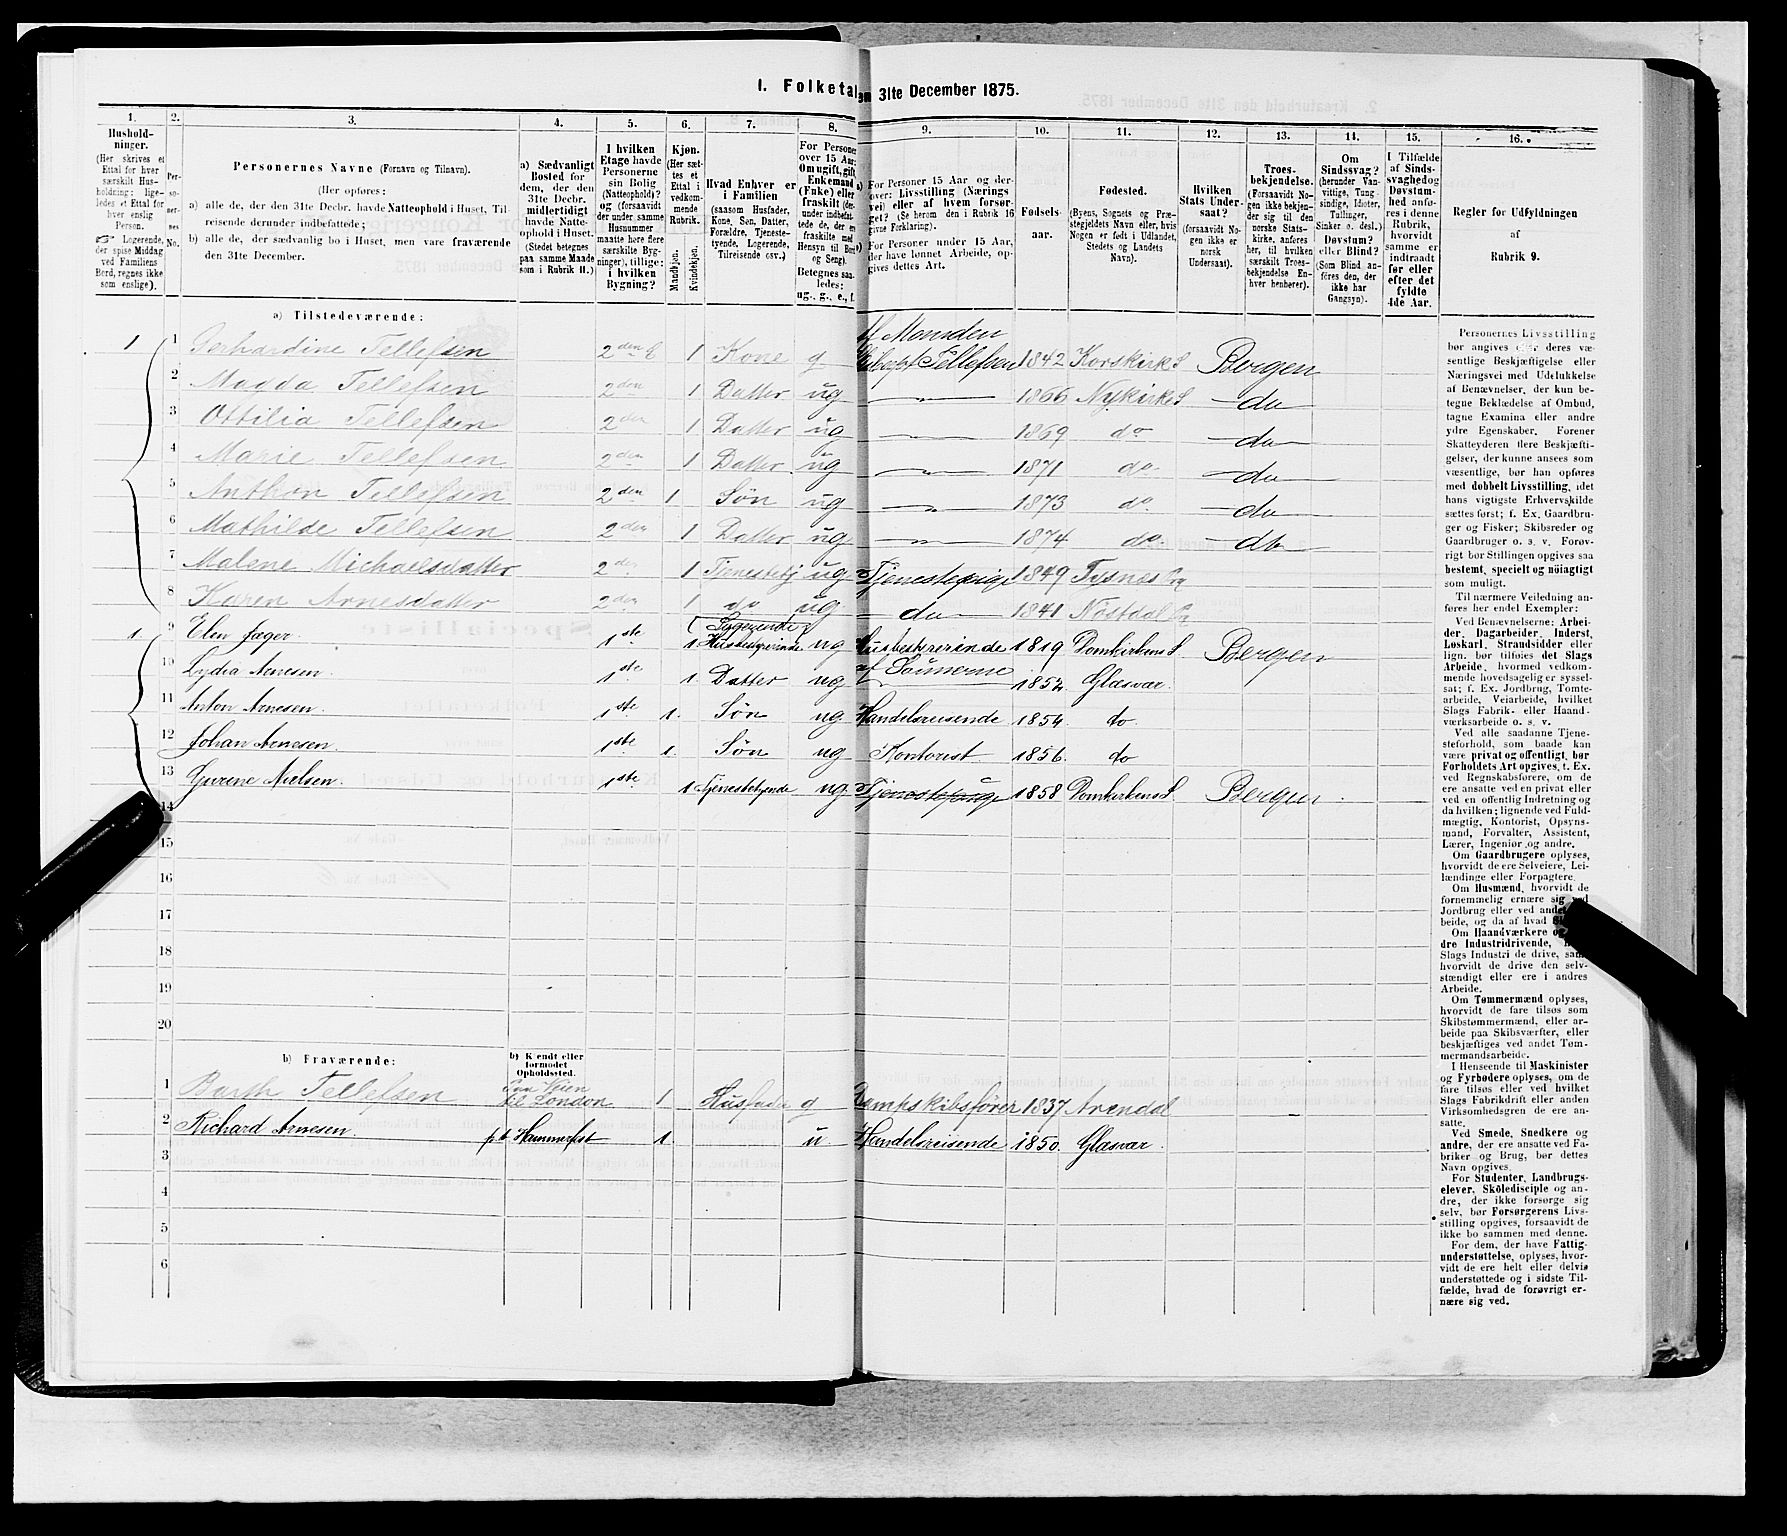 I. Folketal
am 31te December 1875.
1. 2. 3. 4. 5. 6. 7. 8. 9. 10. 11. 12. 13. 14. 15. 16.
Hushold-
ninger.
(Her skrives et
Ettal for hver
særskilt Hus-
holdning; lige-
ledes et Ettal for
hver enslig
Person.
Logerende,
der spise Middag
ved Familiens
Bord, regnes ikke
som enslige).
Per-
so-
ner-
nes
No.
Personernes Navne (Fornavn og Tilnavn).
(Her opføres:
a) alle de, der den 31te Decbr. havde Natteophold i Huset, Til-
reisende derunder indbefattede;
b) alle de, der sædvanlig bo i Huset, men vare fraværende
den 31te December.
a) Sædvanligt
Bosted for
dem, der den
31te Decbr.
midlertidigt
havde Natte-
ophold i Huset.
(Stedet betegnes
paa samme Maade
som i Rubrik 11.)
I hvilken
Etage havde
Personerne
sin Bolig
(Natteophold)?
og (forsaavidt
der under samme
Husnummer
maatte høre flere
særskilte Byg-
ninger), tillige:
i hvilken
Bygning?
Kjøn.
(Her sæt-
tes et
Ettal i
vedkom-
mende
Rubrik.
Mandkjøn.
Kvindekjøn.
Hvad Enhver er
i Familien
(saasom Husfader,
Kone, Søn, Datter,
Forældre, Tjeneste-
tyende, Logerende,
Tilreisende osv.)
For Personer
over 15 Aar:
Om ugift, gift,
Enkemand
(Enke) eller
fraskilt (der-
under indbefat-
tede de, der ere
fraskilte med
Hensyn til Bord
og Seng).
Betegnes saa-
ledes:
ug., g., e., f.
For Personer 15 Aar og der-
over: Livsstilling (Nærings
vei) eller af hvem forsør-
get? (Se herom den i Rubrik 16
givne Forklaring).
For Personer under 15 Aar,
der have lønnet Arbeide, op-
gives dettes Art.
Fødsels-
aar.
Fødested.
(Byens, Sognets og Præ-
stegjeldets Navn eller, hvis
Nogen er født i Udlandet,
Stedets og Landets
Navn).
Hvilken
Stats Under-
saat?
(forsaavidt No-
gen ikke er
norsk
Undersaat).
Troes-
bekjendelse.
(Forsaavidt No-
gen ikke bekjen-
der sig til den
norske Stats-
kirke, anføres
her, til hvilken
særskilt Troes-
bekjendelse En-
hver henhører).
Om
Sindssvag?
(herunder Van-
vittige, Tung-
sindige, Idioter,
Tullinger,
Sinker o. desl.)
Døvstum?
eller Blind?
(Som Blind an-
føres den, der
ikke har
Gangsyn).
I Tilfælde
af Sinds-
svaghed og
Døvstum-
hed anfø-
res i denne
Rubrik,
hvorvidt
samme er
indtraadt
før eller
efter det
fyldte
4de Aar.
Regler for Udfyldningen
af
Rubrik 9.
a) Tilstedeværende:
1 1 Gerhardine Tellefsen 2den E 1 Kone g Af Manden Tellefsen 1842 Korskirke S Bergen
2 Magda Tellefsen 2den 1 Datter ug 1866 Nykirke S do
3 Ottilia Tellefsen 2den 1 Datter ug 1869 do do
4 Marie Tellefsen 2den 1 Datter ug 1871 do do
5 Anthon Tellefsen 2den 1 Søn ug 1873 do do
6 Mathilde Tellefsen 2den 1 Datter ug 1874 do do
7 Malene Michaelsdatter 2de 1 Tjenestetj ug Tjenestepige 1849 Tysnæs Pr
8 Karen Arnesdatter 2den 1 do ug do 1841 Nostdal Pr
1. 9 Elen Jæger. 1ste 1 Logerende Husbestyrerinde ug Husbestyrerinde 1819 Domkirkens S Bergen
10 Lydia Arnesen. 1ste 1. Datter ug af Sønnerne 1852. Glæsvær.
11 Anton Arnesen. 1ste 1. Søn ug Handelsreisende 1854. do.
12 Johan Arnesen. 1ste 1. Søn ug Kontorist 1856. do
13 Gurene Nielsen. 1ste 1 tjenestetyende ug Tjenestepige 1858 Domkirkens S. Bergen
14
15
16
17
18
19
20
b) Fraværende:
b) Kjendt eller
formodet
Opholdssted.
1 Barth Tellefsen Paa Veien til London 1 Husfader g Dampskibsfører 1837 Arendal
2 Richard Arnesen. pt Hammerfest 1. u. Handelsreisende 1850. Glæsvær.
3
4
5
6
Personernes Livsstilling
bør angives efter deres væ-
sentlige Beskjæftigelse eller
Næringsvei med Udelukkelse
af Benævnelser, der kun be-
tegne Beklædelse af Ombud,
tagne Examina eller andre
ydre Egenskaber. Forener
Skatteyderen flere Beskjæfti-
gelser, der kunne ansees som
væsentlige, bør han opføres
med dobbelt Livsstilling, idet
hans vigtigste Erhvervskilde
sættes først; f. Ex. Gaardbru-
ger og Fisker; Skibsreder og
Gaardbruger o. s. v. Forøv-
rigt bør Stillingen opgives saa
bestemt, specielt og nöiagtigt
som muligt.
Til nærmere Veiledning an-
føres her endel Exempler:
Ved Benævnelserne: Arbei-
der, Dagarbeider, Inderst,
Løskarl, Strandsidder eller
lign. bør tilføies det Slags
Arbeide, hvormed vedkom-
mende hovedsagelig er syssel-
sat; f. Ex. Jordbrug, Tomte-
arbeide, Veiarbeide, hvilket
Slags Fabrik- eller Haand-
værksarbeide o. s. v.
Ved alle saadanne Tjene-
steforhold, som baade kan
være privat og offentligt, bør
Forholdets Art opgives, t. Ex.
ved Regnskabsførere, om de
ere ansatte ved en privat eller
ved en offentlig Indretning og
da hvilken; lignende ved Fuld-
mægtig, Kontorist, Opsyns-
mand, Forvalter, Assistent,
Lærer, Ingeniør og andre.
Om Gaardbrugere oplyses,
hvorvidt de ere Selveiere, Lei-
lændinge eller Forpagtere.
Om Husmænd, hvorvidt de
fornemmelig ernære sig ved
Jordbrug eller ved andet
beide, og da af hvad
Om Haandværkere og
dre Industridrivende,
Slags Industri de drive, samt
hvorvidt de drive den selv-
stændigt eller ere i andres
Arbeide.
Om Tømmermænd oplyses,
hvorvidt de fare tilsøs som
Skibstømmermænd, eller ar-
beide paa Skibsværfter, eller
beskjæftiges ved andet Tøm-
mermandsarbeide.
I Henseende til Maskinister
og Fyrbødere oplyses, om de
fare tilsøs eller ved hvilket
Slags Fabrikdrift eller anden
Virksomhedsgren de ere an-
satte.
Ved Smede, Snedkere og
andre, der ere ansatte ved Fa-
briker og Brug, bør dettes
Navn opgives.
For Studenter, Landbrugs-
elever, Skôledisciple og an-
dre, der ikke forsørge sig
selv, bør Forsørgerens Livs-
stilling opgives, forsaavidt de
ikke bo sammen med denne.
For dem, der have Fattig-
understøttelse, oplyses, hvor-
vidt de ere helt eller delvis
understøttede og i sidste Til-
fælde, hvad de forøvrigt er-
nære sig ved.